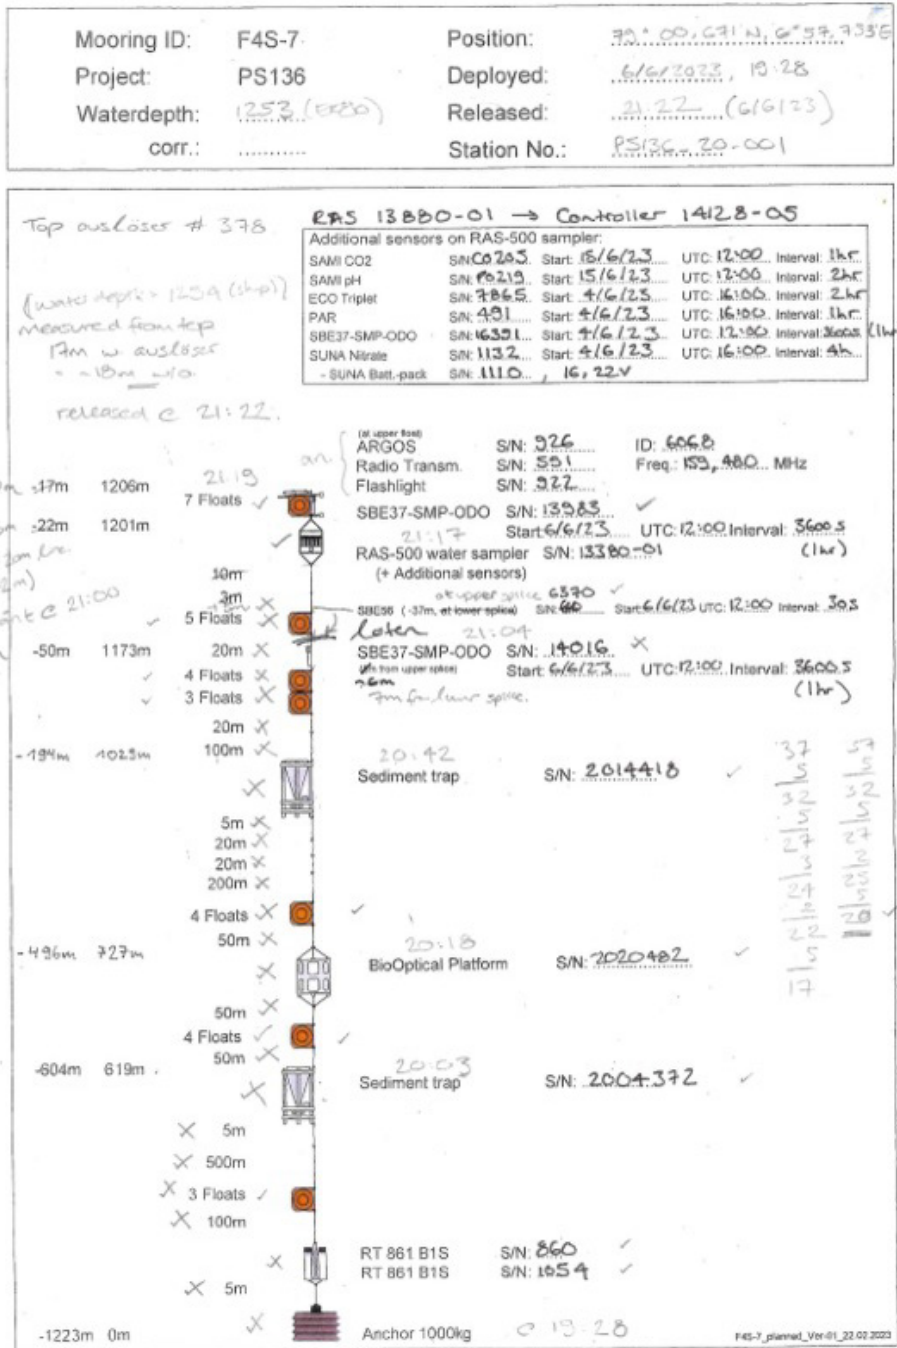 Mooring ID: F4S-7 Position: 79° 00,671 N, 6° 57,733'E
Project: PS136 Deployed: 6/6/2023, 19:28
Waterdepth: 1253 Released: 21:22 (6/6/23)
corr.: ............ Station No.: PS136_20-001
Top auslöser # 378
RAS 13880-01 → Controller 14128-05
Additional sensors on RAS-500 sampler:
SAMI CO2 S/N: C0205 Start: 15/6/23 UTC: 12:00 Interval: 1hr
SAMI pH S/N: P0219 Start: 15/6/23 UTC: 12:00 Interval: 2hr
ECO Triplet S/N: 7865 Start: 4/6/23 UTC: 16:00 Interval: 2hr
PAR S/N: 491 Start: 4/6/23 UTC: 16:00 Interval: 1hr
SBE37-SMP-ODO S/N: 16391 Start: 4/6/23 UTC: 12:00 Interval: 3600s (1hr
SUNA Nitrate S/N: 1132 Start: 4/6/23 UTC: 16:00 Interval: 4h
- SUNA Batt.-pack S/N: 1110 , 16,22V
(water depth = 1254 (ship))
measured from top
17m w. auslöser
= ~18m w/o.
released @ 21:22.
(at upper float)
ARGOS S/N: 926 ID: 6068
Radio Transm. S/N: 591 Freq.: 159,480 MHz
Flashlight S/N: 922
an
-17m 1206m 21:19
7 Floats ✓
SBE37-SMP-ODO S/N: 13983 ✓
Start: 6/6/23 UTC: 12:00 Interval: 3600s
(1hr)
-22m 1201m 21:17
✓ RAS-500 water sampler S/N: 13380-01
(+ Additional sensors)
@ 21:00
10m
3m ×
at upper splice 6370 ✓
SBE56 (-37m, at lower splice) S/N: Start: 6/6/23 UTC: 12:00 Interval: 30s
✓ 5 Floats ×
later 21:04
-50m 1173m 20m ×
SBE37-SMP-ODO S/N: 14016 ×
from upper splice) Start: 6/6/23 UTC: 12:00 Interval: 3600s
~6m (1hr)
7m from lower splice.
✓ 4 Floats ×
✓ 3 Floats ×
20m ×
100m ×
-194m 1029m 20:42
× Sediment trap S/N: 2014418 ✓
5m ×
20m ×
20m ×
200m ×
4 Floats × ✓
50m ×
37
5
32
5
27
3
24
22
5
17
57
5
52
27
20 ✓
-496m 727m 20:18
× BioOptical Platform S/N: 2020482 ✓
50m ×
4 Floats ✓ ✓
50m ×
-604m 619m 20:03
× Sediment trap S/N: 2004372 ✓
× 5m
× 500m
× 3 Floats ✓
× 100m
× RT 861 B1S S/N: 860 ✓
RT 861 B1S S/N: 1054 ✓
× 5m
-1223m 0m × Anchor 1000kg @ 19:28
F4S-7_planned_Ver-01_22.02.2023